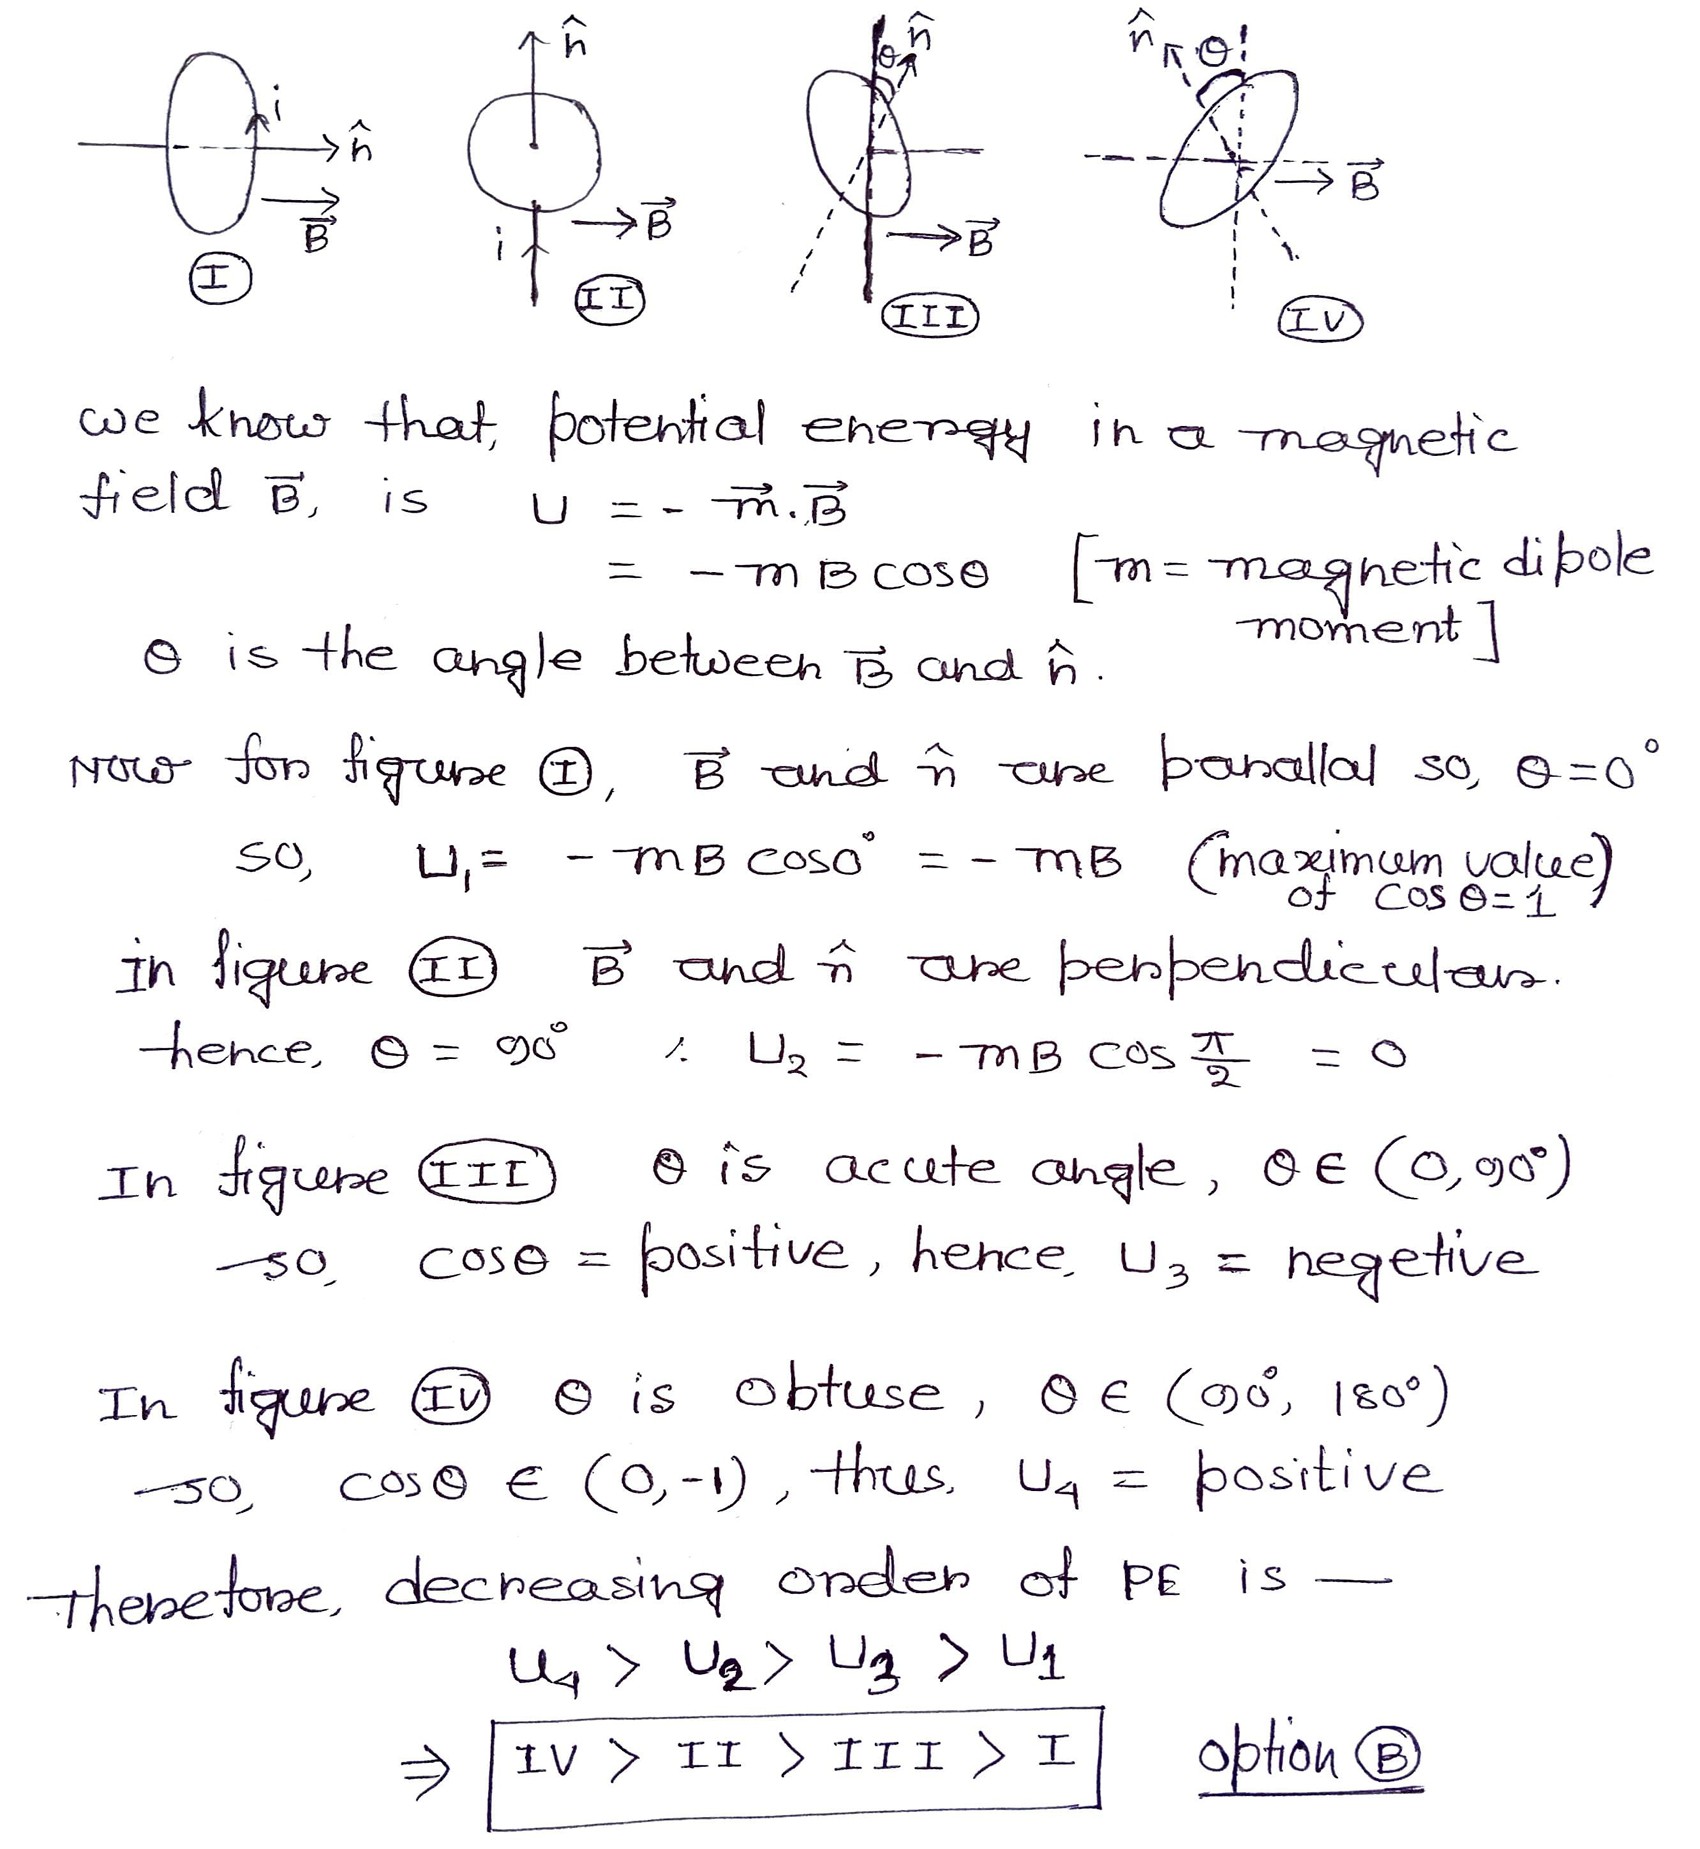 i n̂ B⃗ I
n̂ i B⃗ II
θ n̂ B⃗ III
n̂ θ B⃗ IV
we know that, potential energy in a magnetic
field B⃗, is U = - m⃗.B⃗
= - m B cosθ [m = magnetic dipole
moment]
θ is the angle between B⃗ and n̂.
Now for figure I, B⃗ and n̂ are parallal so, θ=0°
so, U₁ = - mB cos0° = - mB (maximum value)
of cos θ=1
in figure II B⃗ and n̂ are perpendicular.
hence, θ = 90° ∴ U₂ = - mB cos π/2 = 0
In figure III θ is acute angle, θ ∈ (0, 90°)
so, cosθ = positive, hence, U₃ = negetive
In figure IV θ is obtuse, θ ∈ (90°, 180°)
so, cosθ ∈ (0,-1), thus, U₄ = positive
Therefore, decreasing order of PE is —
U₄ > U₂ > U₃ > U₁
⇒ IV > II > III > I option B